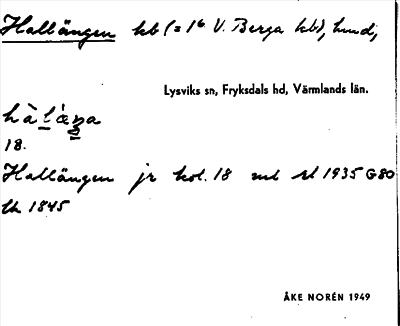 Hallängen kb (= 1/6 V. Berga kb), hmd,
Lysviks sn, Fryksdals hd, Värmlands län.
18.
Hallängen jr kol. 18 rl 1935 G80
1845
ÅKE NORÉN 1949